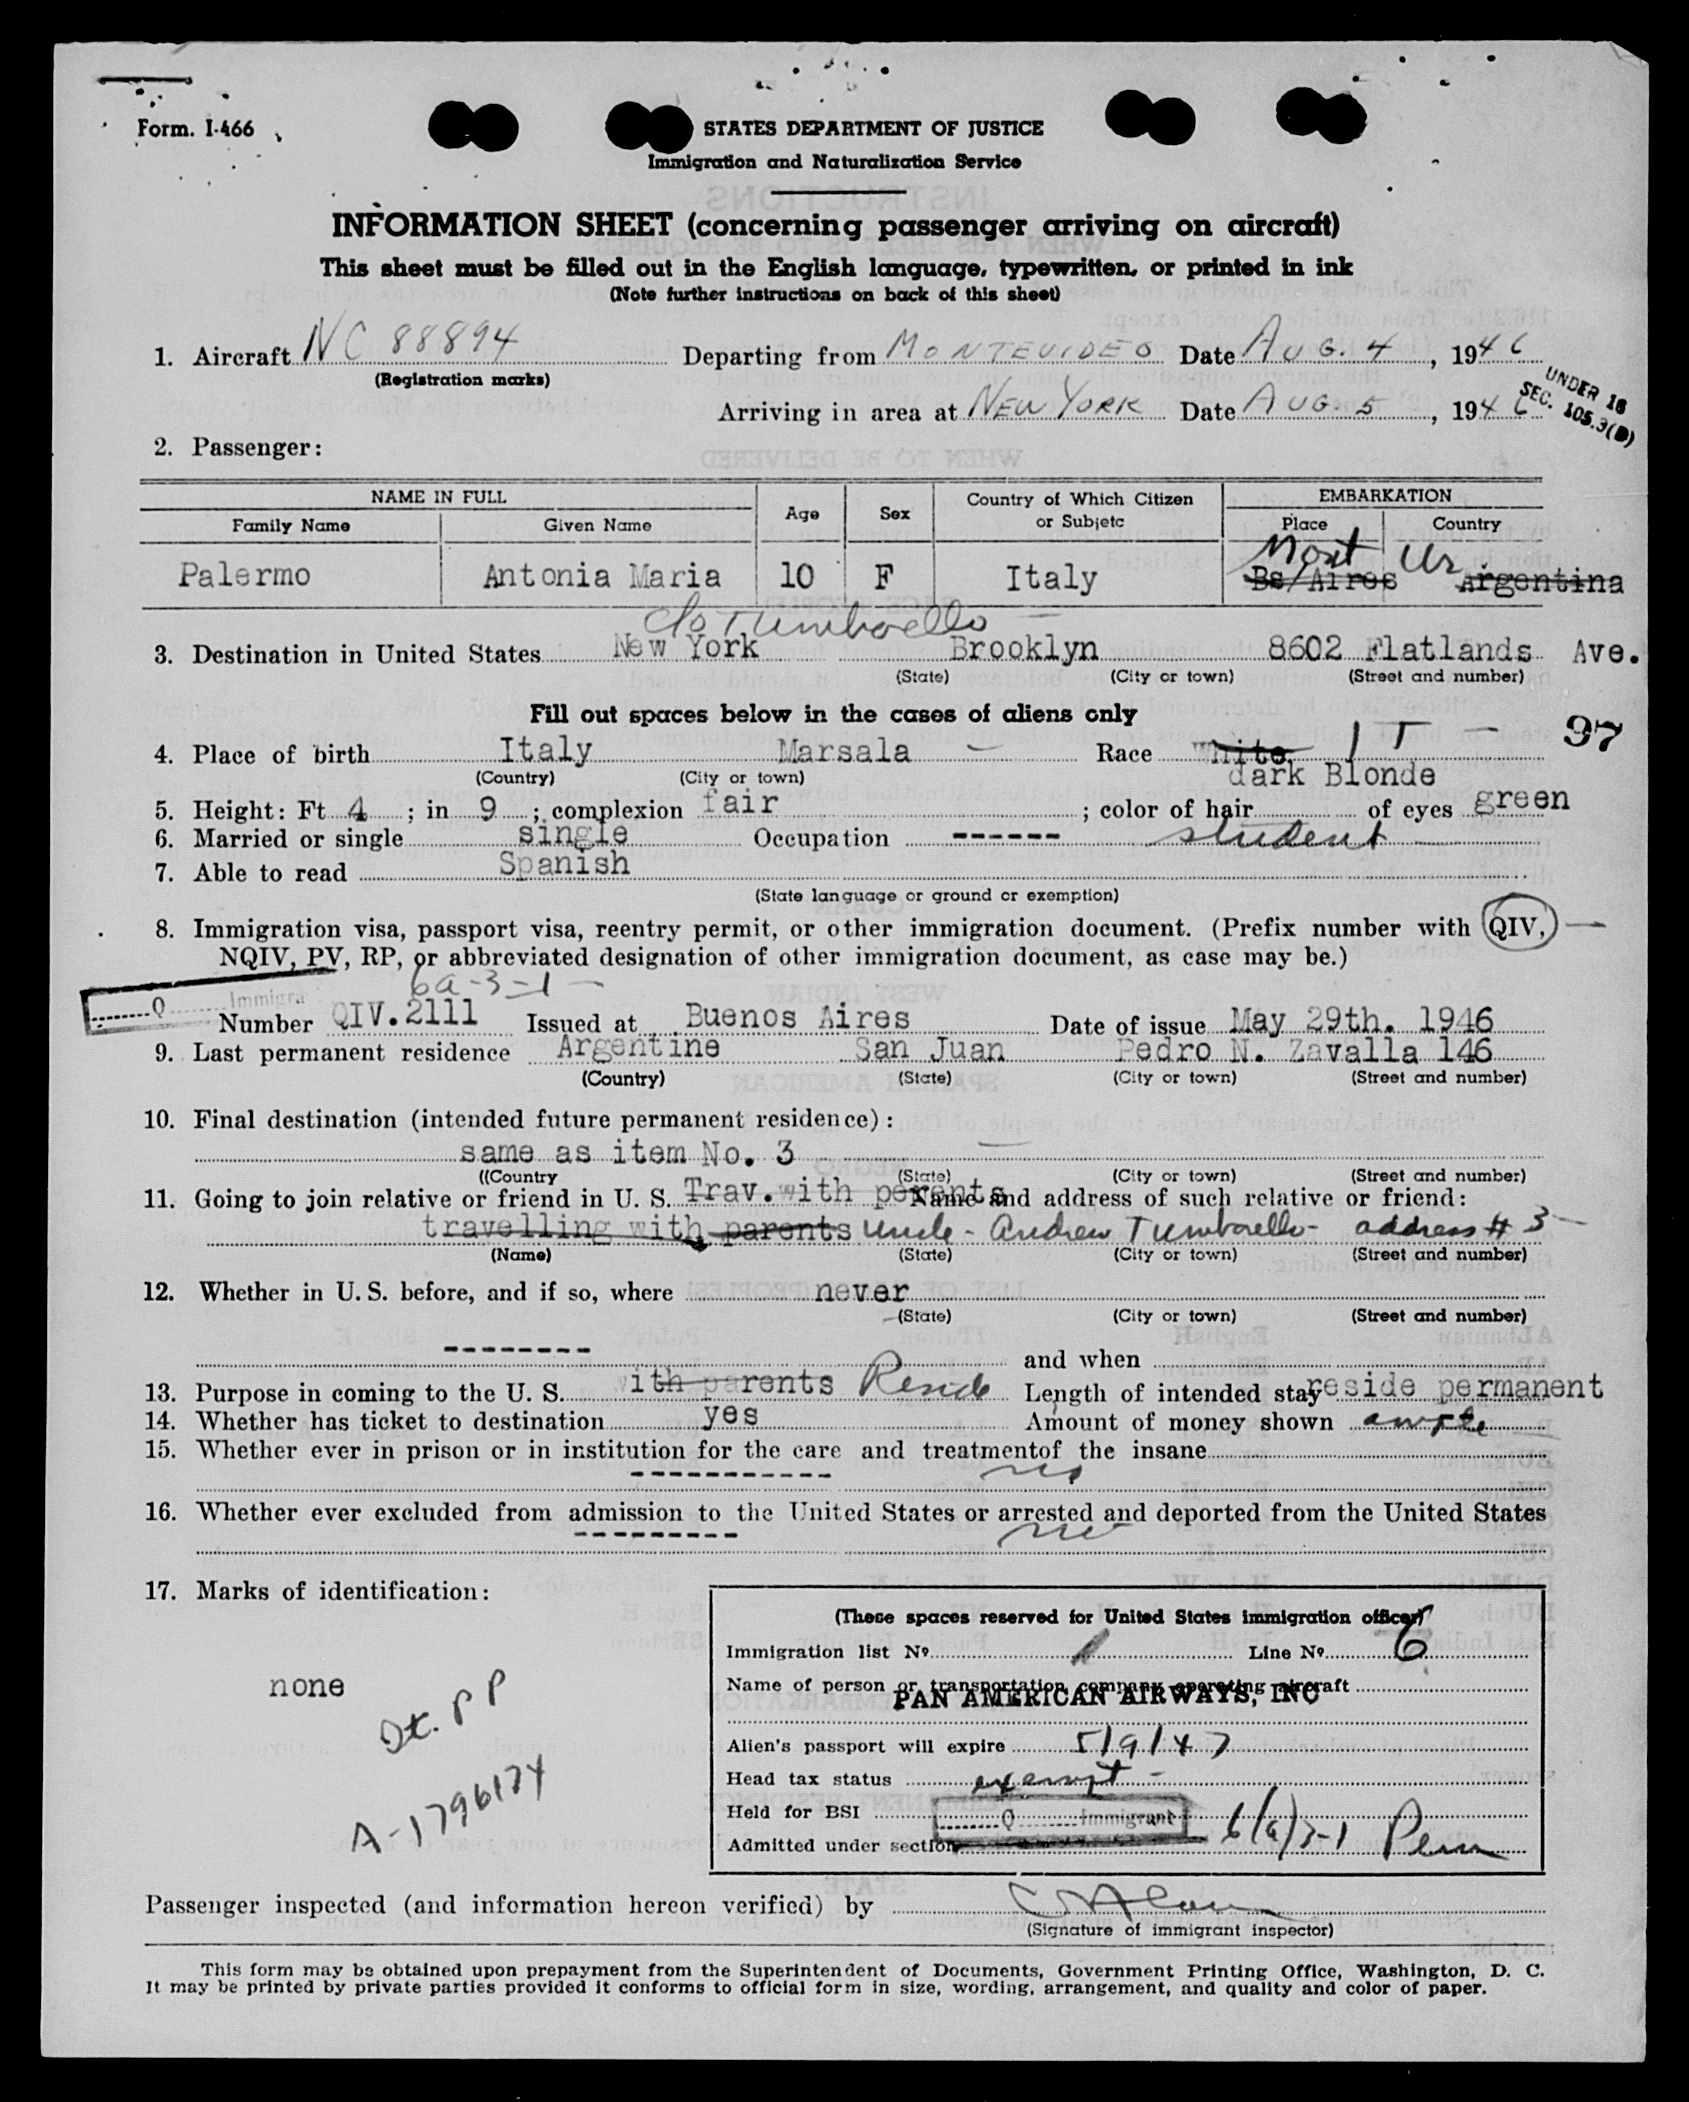 Form. I-466
STATES DEPARTMENT OF JUSTICE
Immigration and Naturalization Service
INFORMATION SHEET (concerning passenger arriving on aircraft)
This sheet must be filled out in the English language, typewritten, or printed in ink
(Note further instructions on back of this sheet)
1. Aircraft NC 88894 Departing from MONTEVIDEO Date AUG. 4, 1946
(Registration marks)
UNDER 16
SEC. 105.3(B)
Arriving in area at NEW YORK Date AUG. 5, 1946
2. Passenger:
NAME IN FULL Age Sex Country of Which Citizen or Subjetc EMBARKATION
Family Name Given Name Place Country
Mont Ur
Palermo Antonia Maria 10 F Italy Bs/Aires Argentina
c/o Tumbarello
3. Destination in United States New York Brooklyn 8602 Flatlands Ave.
(State) (City or town) (Street and number)
Fill out spaces below in the cases of aliens only
97
4. Place of birth Italy Marsala Race White IT
(Country) (City or town)
dark Blonde
5. Height: Ft 4; in 9; complexion fair; color of hair of eyes green
6. Married or single single Occupation ------ student
7. Able to read Spanish
(State language or ground or exemption)
8. Immigration visa, passport visa, reentry permit, or other immigration document. (Prefix number with QIV,
NQIV, PV, RP, or abbreviated designation of other immigration document, as case may be.)
6a-3-1
Q Immigra
Number QIV.2111 Issued at Buenos Aires Date of issue May 29th. 1946
9. Last permanent residence Argentine San Juan Pedro N. Zavalla 146
(Country) (State) (City or town) (Street and number)
10. Final destination (intended future permanent residence):
same as item No. 3
((Country (State) (City or town) (Street and number)
11. Going to join relative or friend in U. S. Trav. with parents Name and address of such relative or friend:
travelling with parents Uncle - Andrew Tumbarello - address # 3
(Name) (State) (City or town) (Street and number)
12. Whether in U. S. before, and if so, where never
(State) (City or town) (Street and number)
-------- and when
13. Purpose in coming to the U. S. with parents Reside Length of intended stay reside permanent
14. Whether has ticket to destination yes Amount of money shown
15. Whether ever in prison or in institution for the care and treatmentof the insane
----------- no
16. Whether ever excluded from admission to the United States or arrested and deported from the United States
--------- no
17. Marks of identification:
none
It. PP
A-1796174
(These spaces reserved for United States immigration officer)
Immigration list Nº 1 Line Nº 6
Name of person or transportation company operating aircraft
PAN AMERICAN AIRWAYS, INC
Alien's passport will expire 5/9/47
Head tax status exempt -
Held for BSI
Q Immigrant
Admitted under section 6(a)3-1 Perm
Passenger inspected (and information hereon verified) by
(Signature of immigrant inspector)
This form may be obtained upon prepayment from the Superintendent of Documents, Government Printing Office, Washington, D. C.
It may be printed by private parties provided it conforms to official form in size, wording, arrangement, and quality and color of paper.